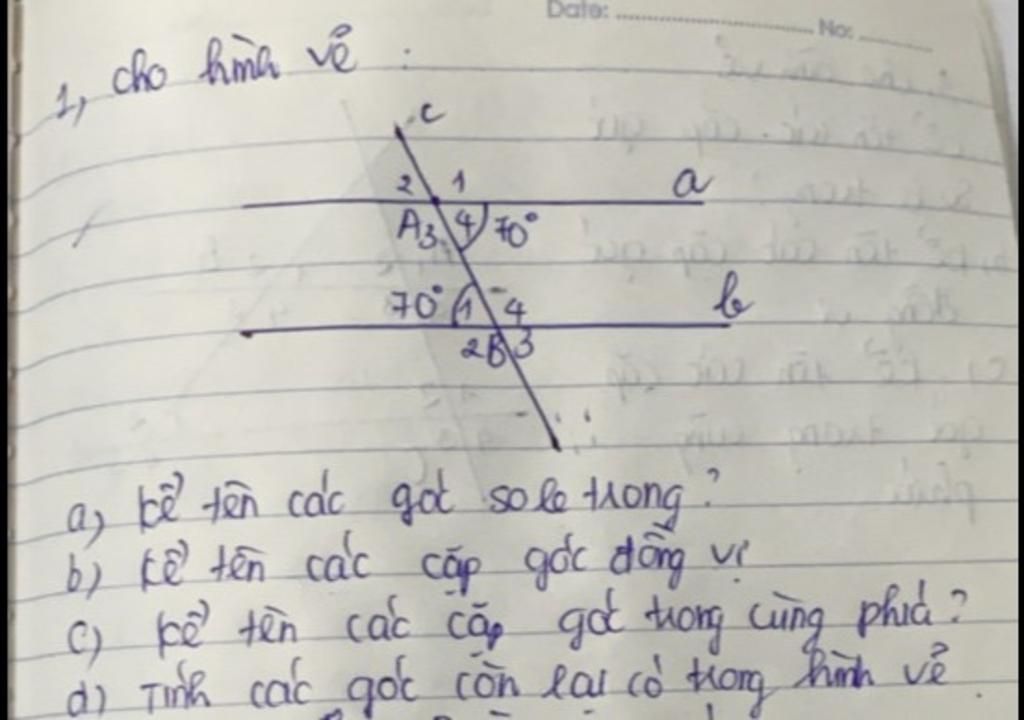 Date: ........ No: ........
1, cho hình vẽ :
c
2 1 a
A3 4 70°
70° 1 4 b
2 B 3
a) kể tên các góc so le trong?
b) kể tên các cặp góc đồng vị
c) kể tên các cặp góc trong cùng phía?
d) Tính các góc còn lại có trong hình vẽ